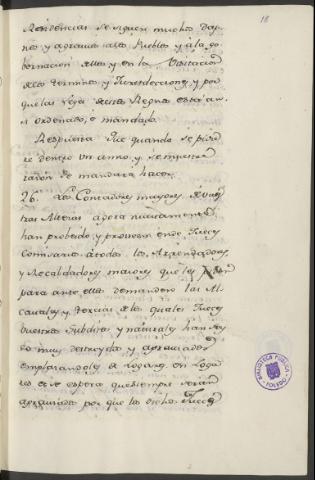 18
Residencias se siguen muchos daños
y agravios a los Pueblos y a la go-
bernacion dellos y en la Visitacion
de los terminos y Jurisdicciones, y por
que las leyes destos Regnos está an-
si ordenado, e mandado
Respuesta que quando se pidie-
re dentro un anno, y se mostrare
razon se mandara hacer.
26. Los Contadores mayores de vues-
tras Altezas agora nuevamente
han probeido y proveen endo Jueces
Comisarios a todos los Arrendadores,
y Recaldadores maiores que les piden
para ante ellos demanden las Al-
cavalas y tercias de los quales Jueces
vuestros subditos y naturales han si-
do muy destruydos y agraviados
emplazandoles de Logares en Loga-
res e se espera que siempre seran
agraviados por que los dichos Jueces
BIBLIOTECA PUBLICA
TOLEDO